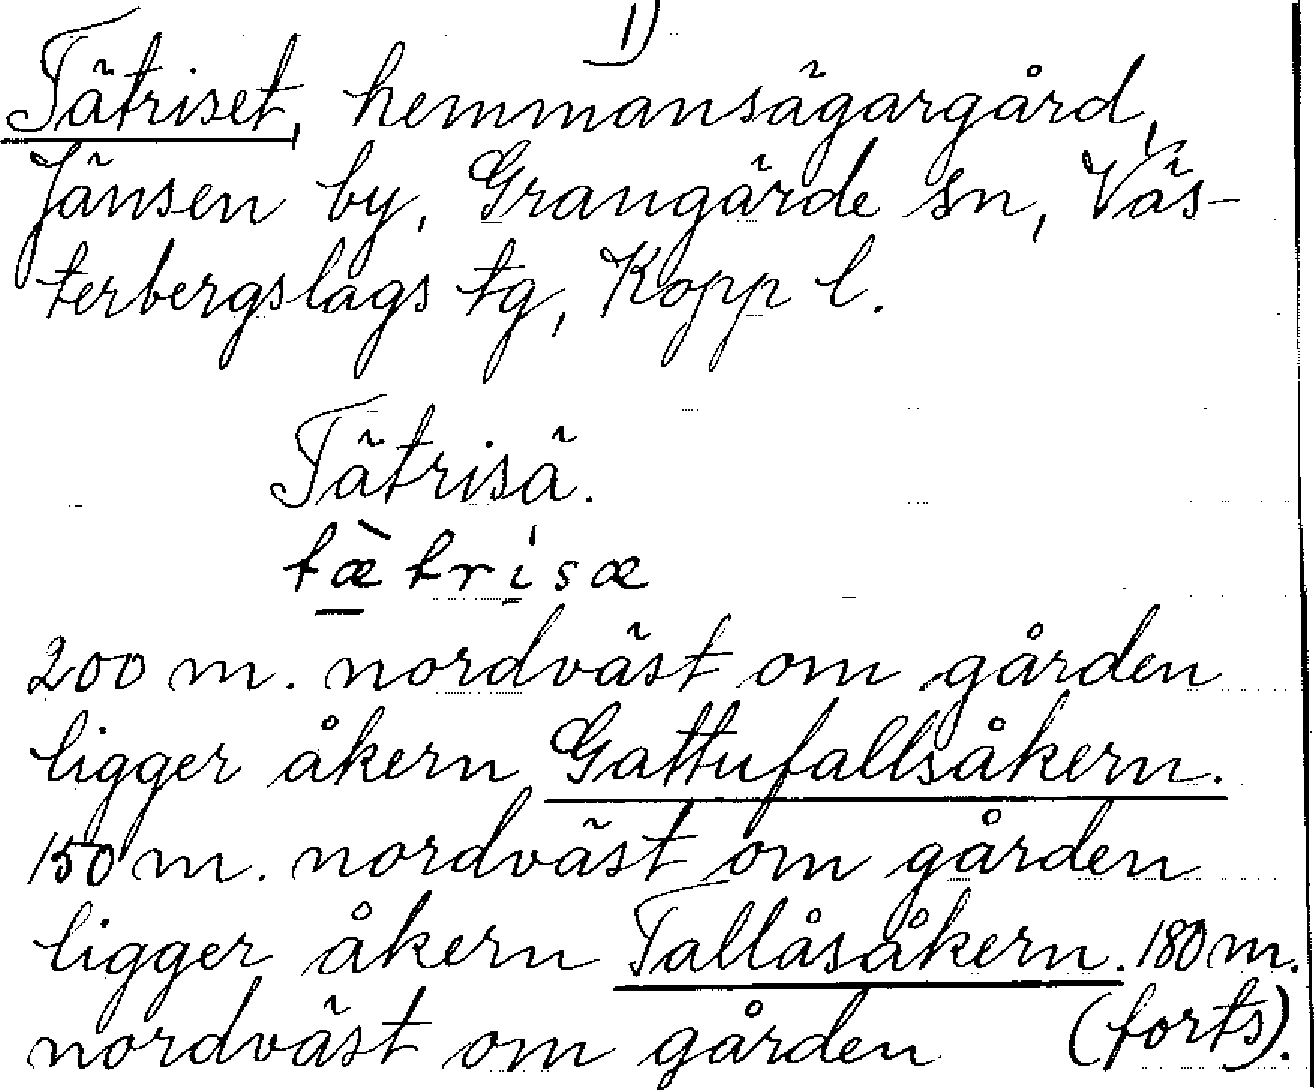 1)
Tätriset, hemmansägargård,
Jänsen by, Grangärde sn, Väs-
terbergslags tg, Kopp l.
Tätrisä.
tæ̀trisæ
200 m. nordväst om gården
ligger åkern Gattufallsåkern.
150 m. nordväst om gården
ligger åkern Tallåsåkern. 180 m.
nordväst om gården (forts).